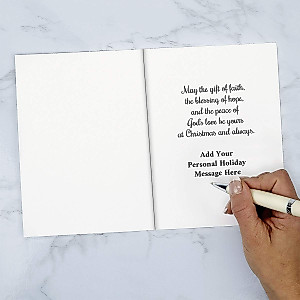 May the gift of faith,
the blessing of hope,
and the peace of
God's love be yours
at Christmas and always.
Add Your
Personal Holiday
Message Here